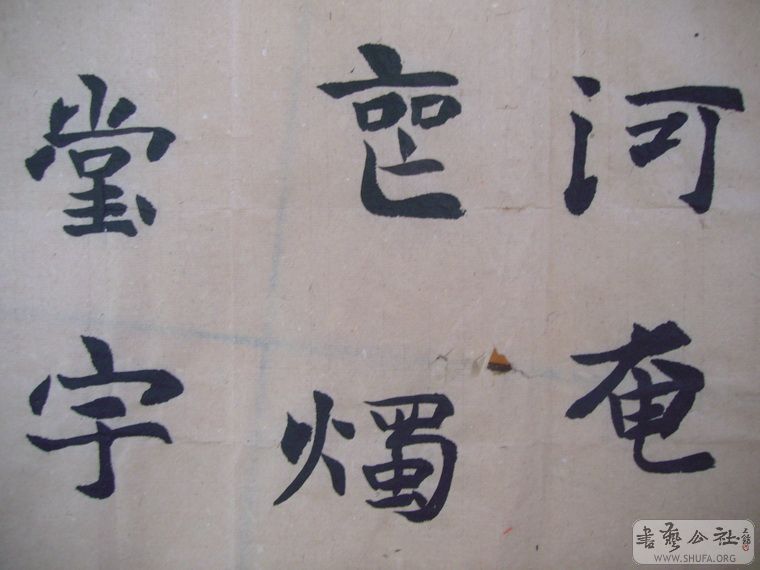 河奄
燭
堂宇
書藝公社
WWW.SHUFA.ORG